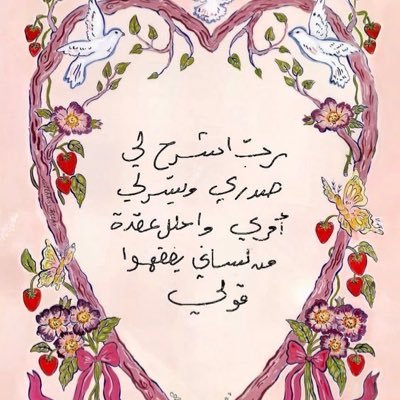 ربّ اشرح لي
صدري ويسّر لي
أمري واحلل عقدة
من لساني يفقهوا
قولي